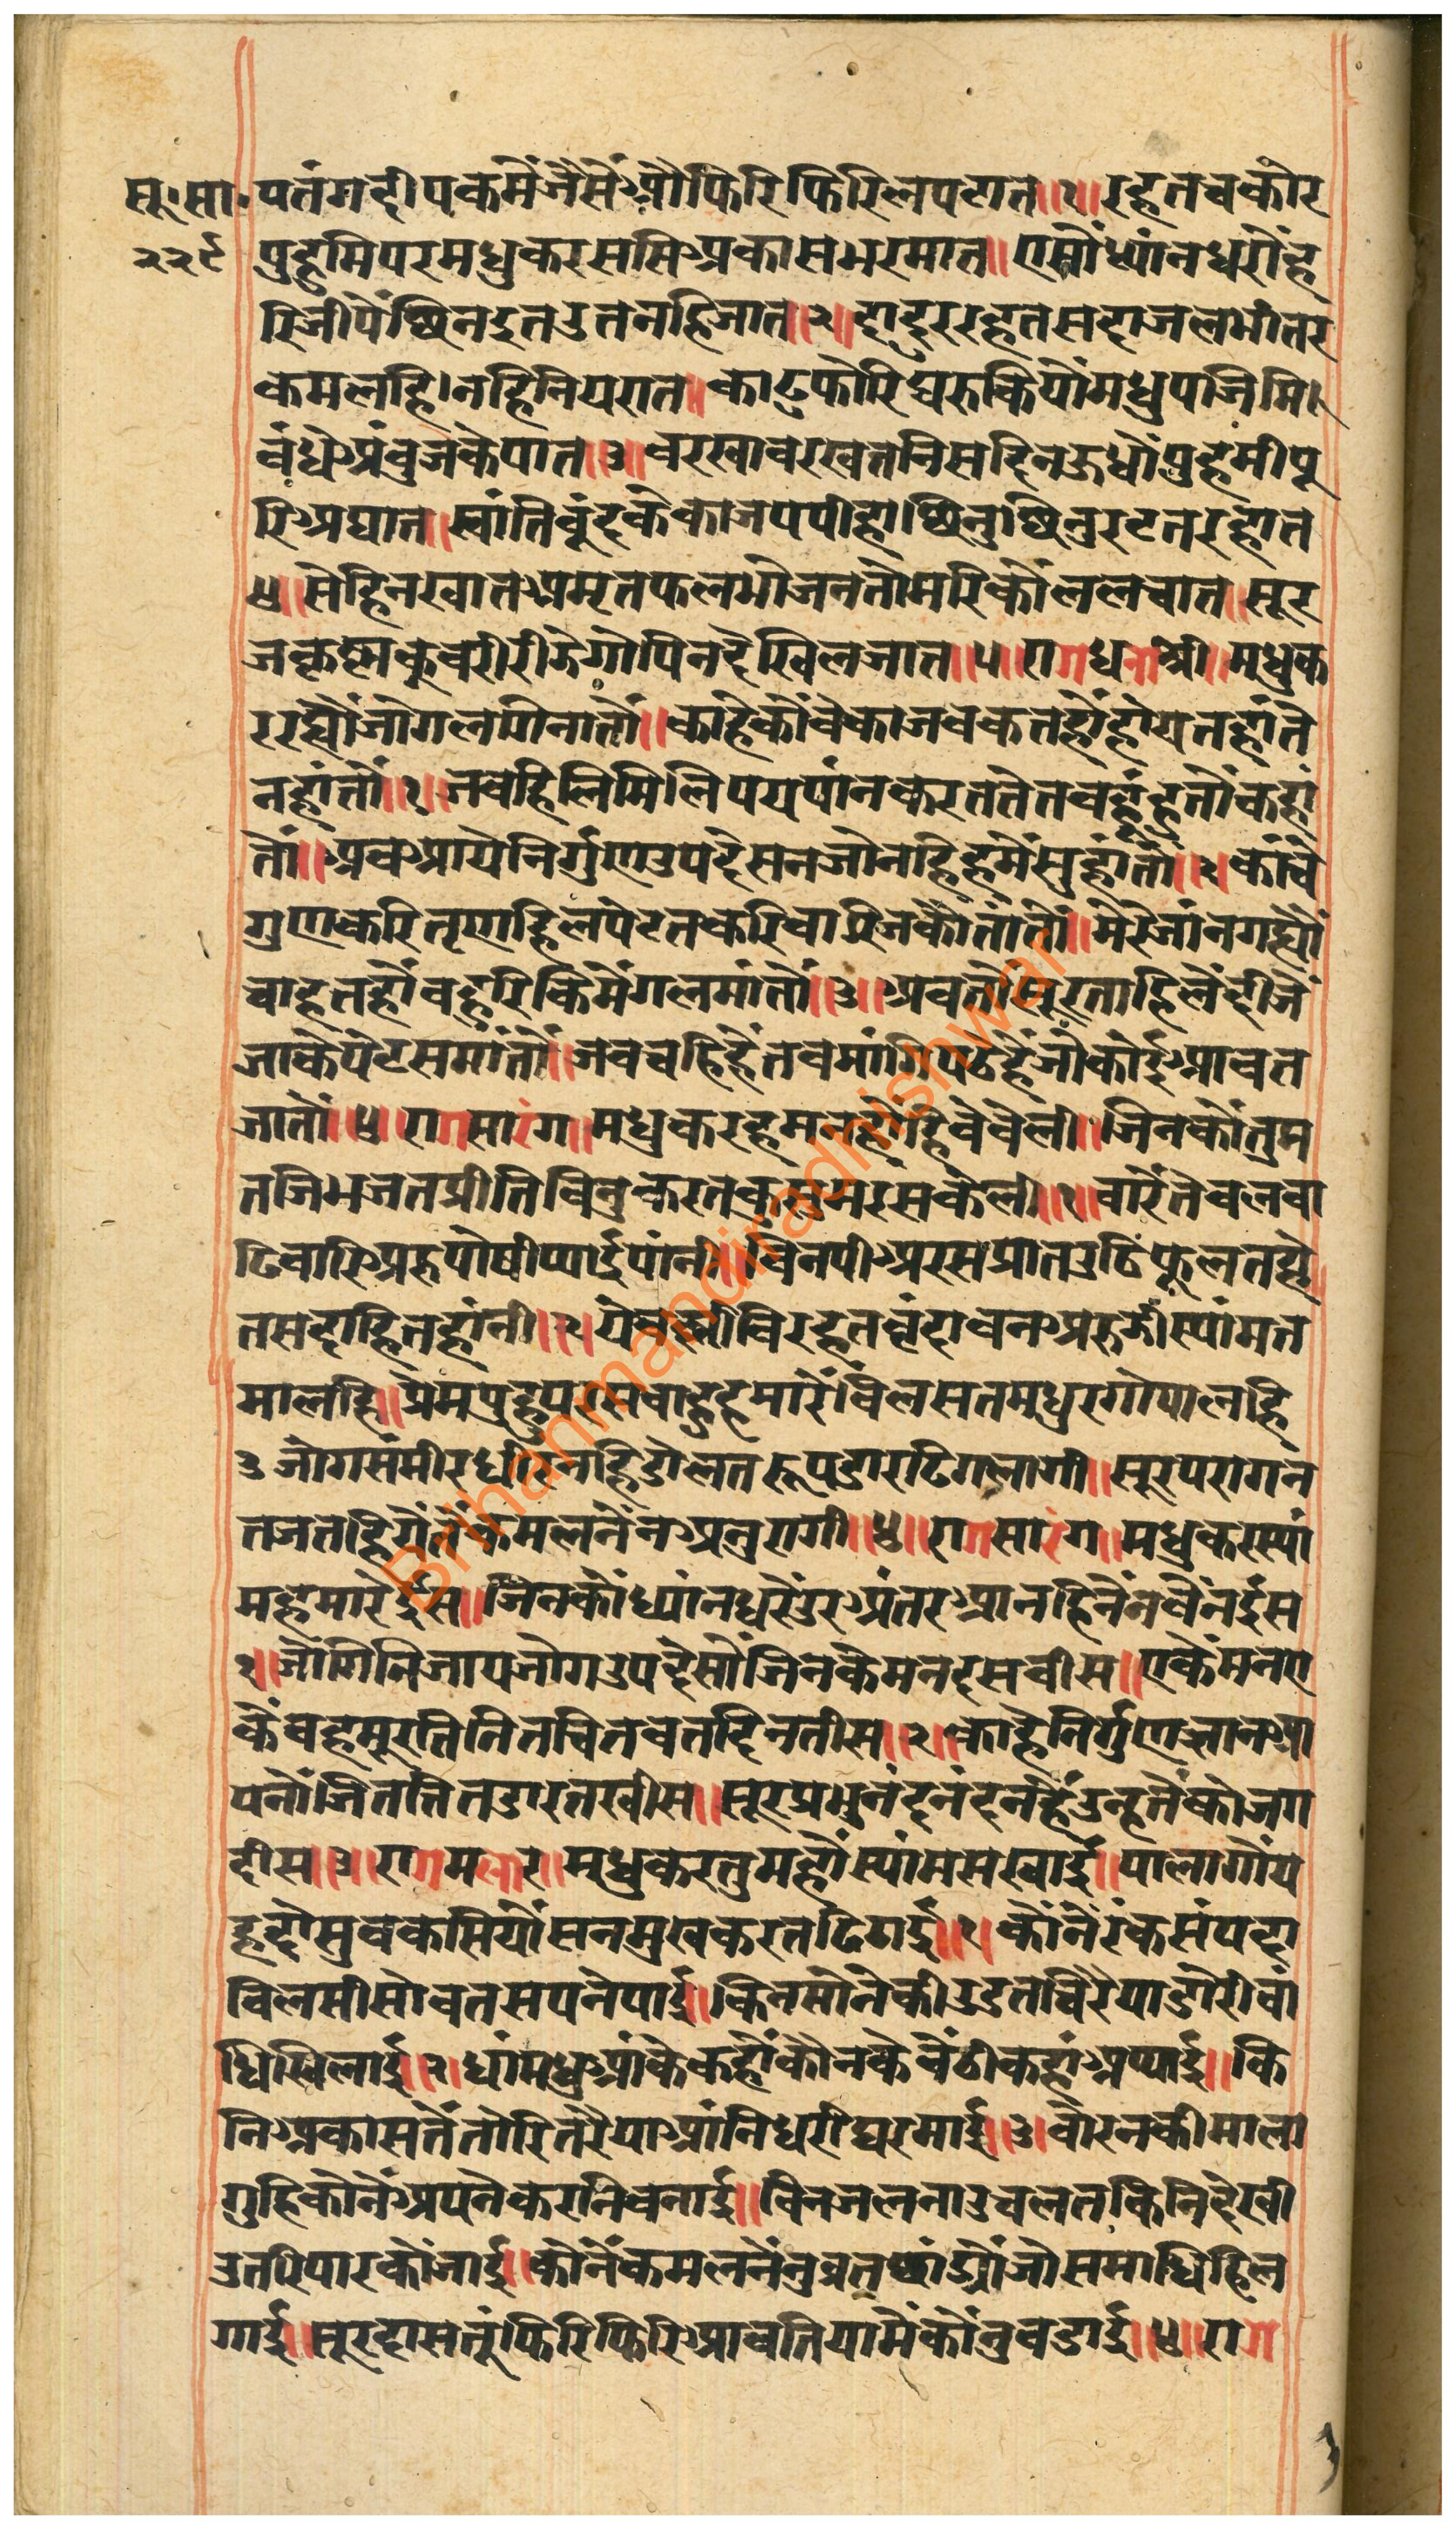 सू. सा.
२२९
पतंगदीपकमेंजैसेंओफिरिफिरिलपटात॥१॥रहतचकोर
पुहुमिपरमधुकरससिअकासभरमात॥एसोंध्यांनधरोंह
रिजीपेंछिनइतउतनहिजात॥२॥दादुररहतसदाजलभींतर
कमलहि।नहिनियरात॥काठफोरिघरुकियोंमधुपजिमि।
बंधेअंबुजकेपात॥३॥बरखाबरखतनिसदिनऊधोंपुहमीपू
रिअघात॥स्वांतिबूंदकेकाजपपीहाछिनुछिनुरटतरहात
४॥सेहिनखातअमृतफलभोजनतोमरिकोंललचात॥सूर
जकृस्नकुबरीरीजेगोपिनदेखिलजात॥५॥रागधनांश्री॥मधुक
ररह्योंजोगलगिनातों॥काहेकोंबेकाजबकतहोंहोयतहांते
नहांतों॥१॥जबहिलिमिलिपयपांनकरततेतबहूंहुतोंकहां
तों॥अबआयेनिर्गुणउपदेसनजोनहिहमेंसुहांतों॥२॥कांचे
गुणकरितृणहिलपेटतकरिबारिजकोतांतों॥मेरेजांनगह्यों
चाहतहोंबहुरिकिमेंगलमांतों॥३॥अबतोसूरताहिलेंदीजें
जाकेपेटसमांतों॥जबचहिहेंतबमांगिपठेहेंजोकोईआवत
जातों॥४॥रागसारंग॥मधुकरहमनहोंहिवेबेली॥जिनकोंतुम
तजिभजतप्रीतिबिनुकरतकुसुमरसकेली॥१॥बारेंतेबलबा
ढिबारिअरुपोषीप्याईपांनी॥बिनपीअरसप्रातउठिंफूलतहो
तसदाहितहांनी॥२॥येबल्लीबिरहतबृंदाबनअरुजींस्यांमत
मालहि॥प्रेमपुहुपरसबाहुहमारेंबिलसतमधुरगोपालहि
३जोगसंमीरधीरनहिडोलतरूपडारढिगलागी॥सूरपरागन
तजतहियेंतेंकमलनेंनअनुरागी॥४॥रागसारंग॥मधुकरस्यां
महमारेईस॥जिनकोंध्यांनधरेंउरअंतरआनहिनेंनबेंनईस
१॥जोगिनिजायजोगउपदेसोंजिनकेमनदसबीस॥एकेंमनए
केंवहमूरतिनितचितवतदिनतीस॥२॥काहेनिर्गुणग्यानआ
पनोंजिततितडारतखीस॥सूरप्रभुनंदनंदनहेंउनतेंकोजग
दीस॥३॥रागमलार॥मधुकरतुमहोंस्यांमसखाई॥पालागोंय
हदोसुबकसियोंसनमुखकरतढिठाई॥१॥कोंनेंरंकसंपदा
बिलसीसोवतसपनेपाई॥किनसोनेकीउडतचिरैयाडोरीबां
धिखिलाई॥२॥धांमधूआंकेकहोंकौनकेबेंठीकहांअथाई॥कि
निअकासतेंतोरितरैयाआंनिधरीघरमाई॥३॥बोरनकीमाला
गुहिकोनेंअपनेकरनिबनाई॥बिनजलनाउचलतकिनिदेखी
उतरिपारकोंजाई॥कोनेंकमलनेंनुब्रतछांड्योंजोसमाधिहिल
गाई॥सूरदासतूंफिरिफिरिआवतियामेंकोंनुबडाई॥४॥राग